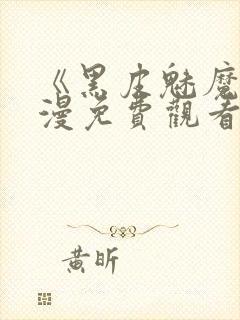 《黑皮魅魔
漫免費觀看
黃昕